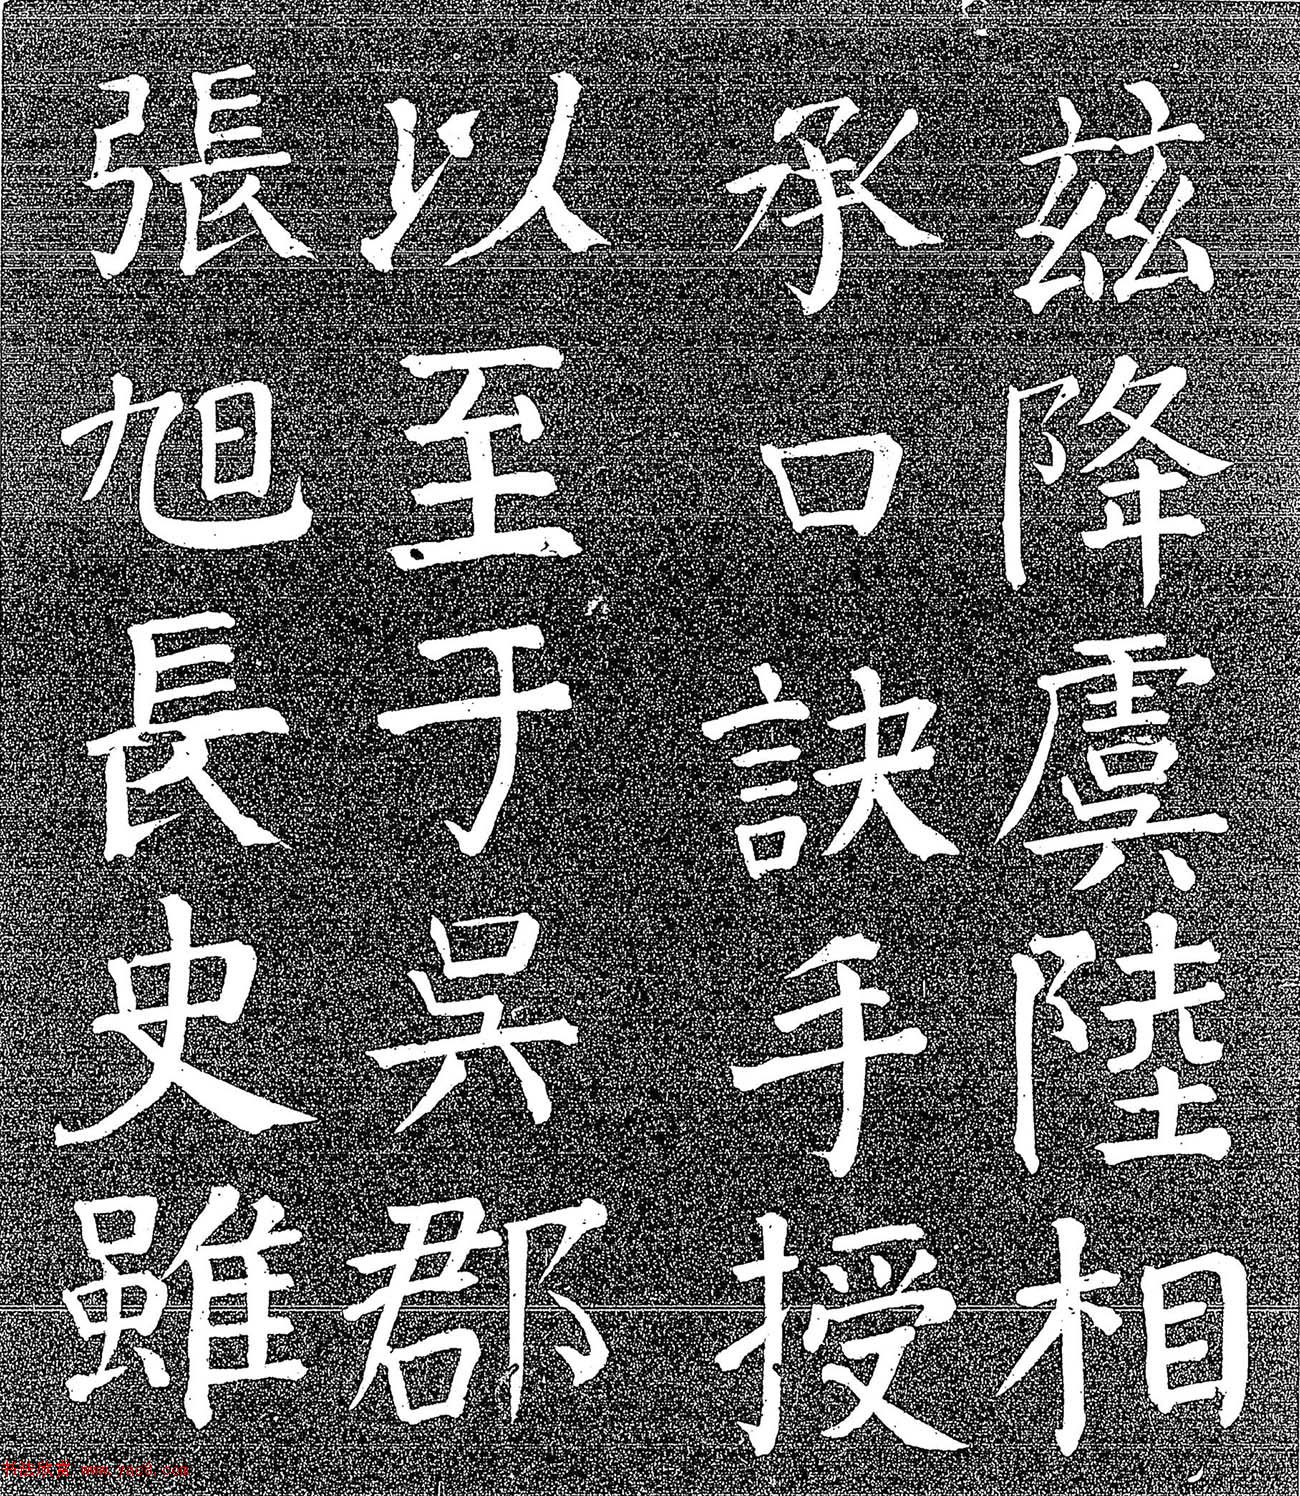 茲降虞陸相
承口訣手授
以至于吳郡
張旭長史雖